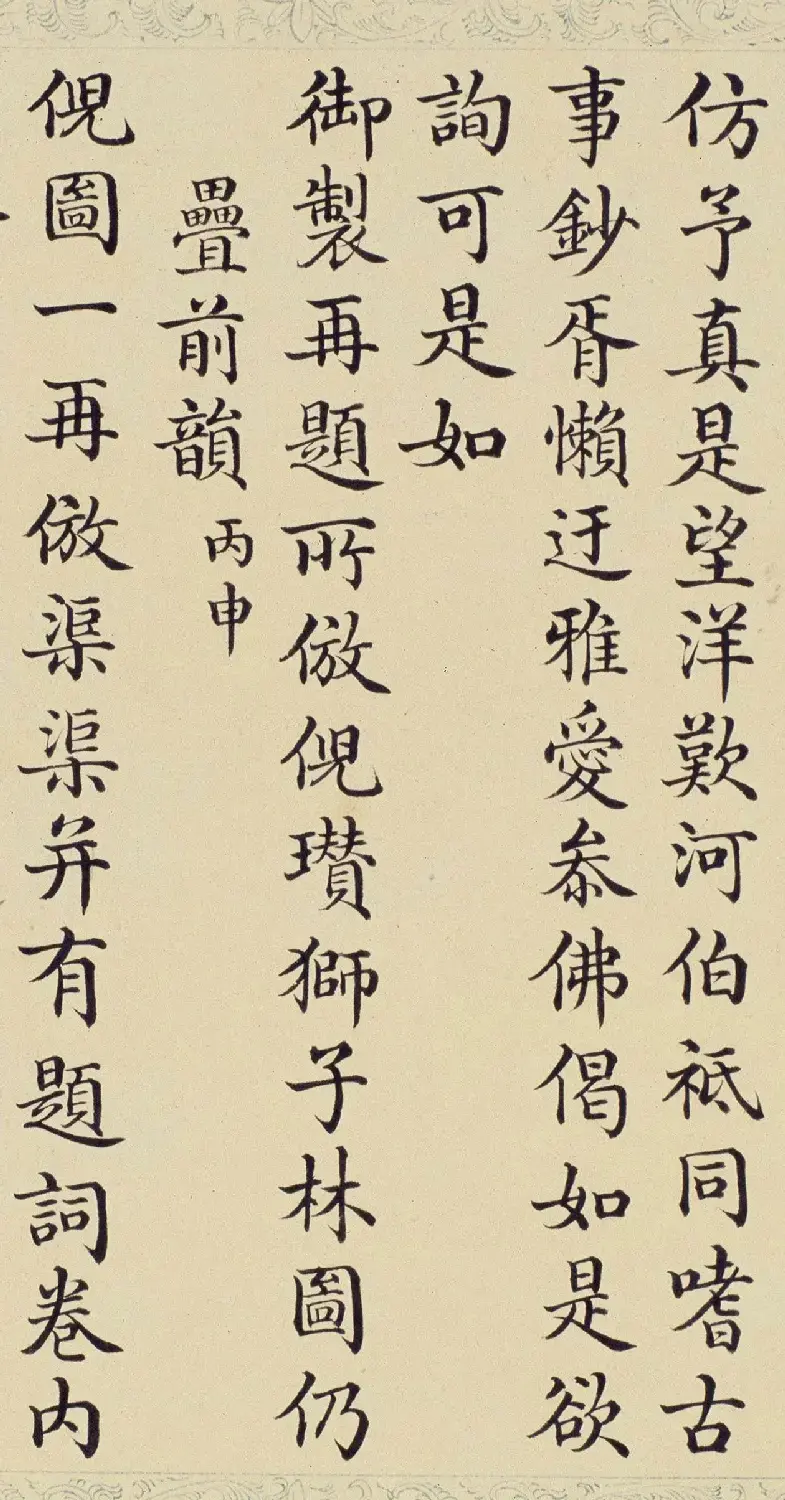 仿予真是望洋歎河伯祗同嗜古
事鈔胥懶迂雅愛叅佛偈如是欲
詢可是如
御製再題所倣倪瓚獅子林圖仍
疊前韻丙申
倪圖一再倣渠渠并有題詞卷内